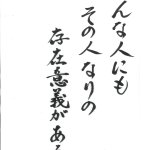 んな人にも
その人なりの
存在意義がある